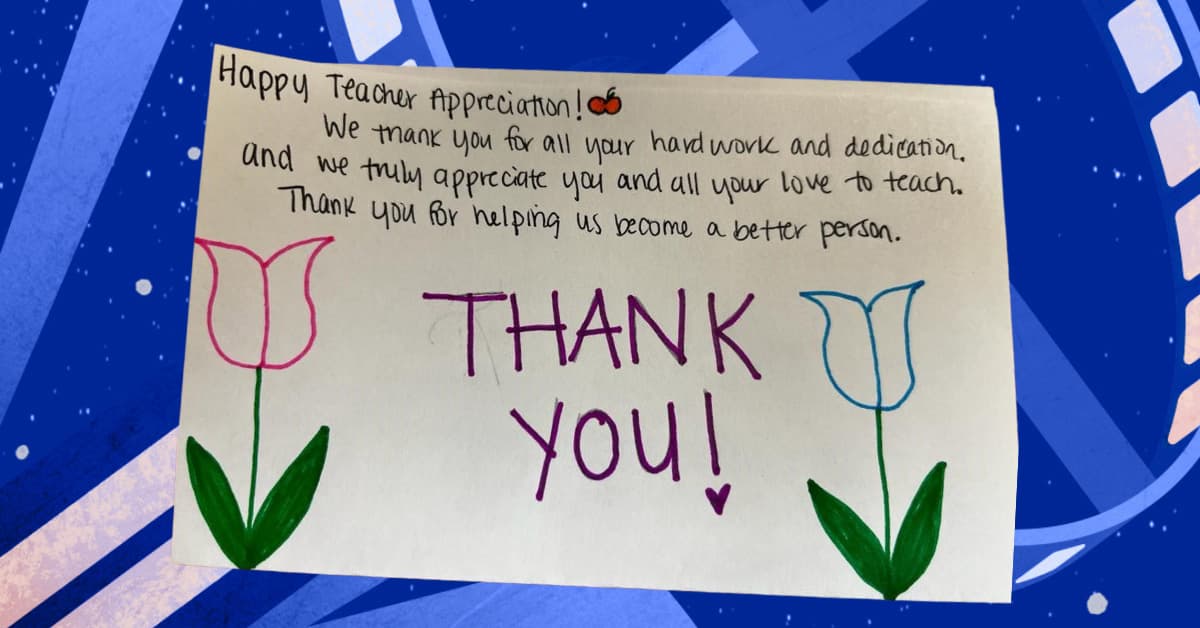 Happy Teacher Appreciation!
We thank you for all your hard work and dedication.
and we truly appreciate you and all your love to teach.
Thank you for helping us become a better person.
THANK
YOU!